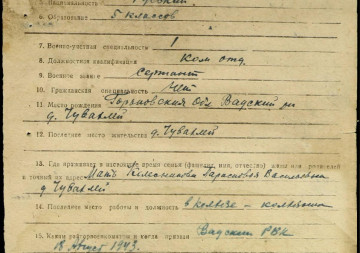 5. Национальность Русский
6. Образование 5 классов
7. Военно-учетная специальность 1
8. Должностная квалификация Ком отд.
9. Военное звание сержант
10. Гражданская специальность нет
11. Место рождения Горьковская Обл. Вадский р-н
д. Чуварлей
12. Последнее место жительства д. Чуварлей
13. Где проживает в настоящее время семья (фамилия, имя, отчество) жены или родителей
и точный их адрес Мать Васильевна
д. Чуварлей
14. Последнее место работы и должность в колхозе - колхозник
15. Каким райгорвоенкоматом и когда призван Вадским РВК
18 Август 1943.